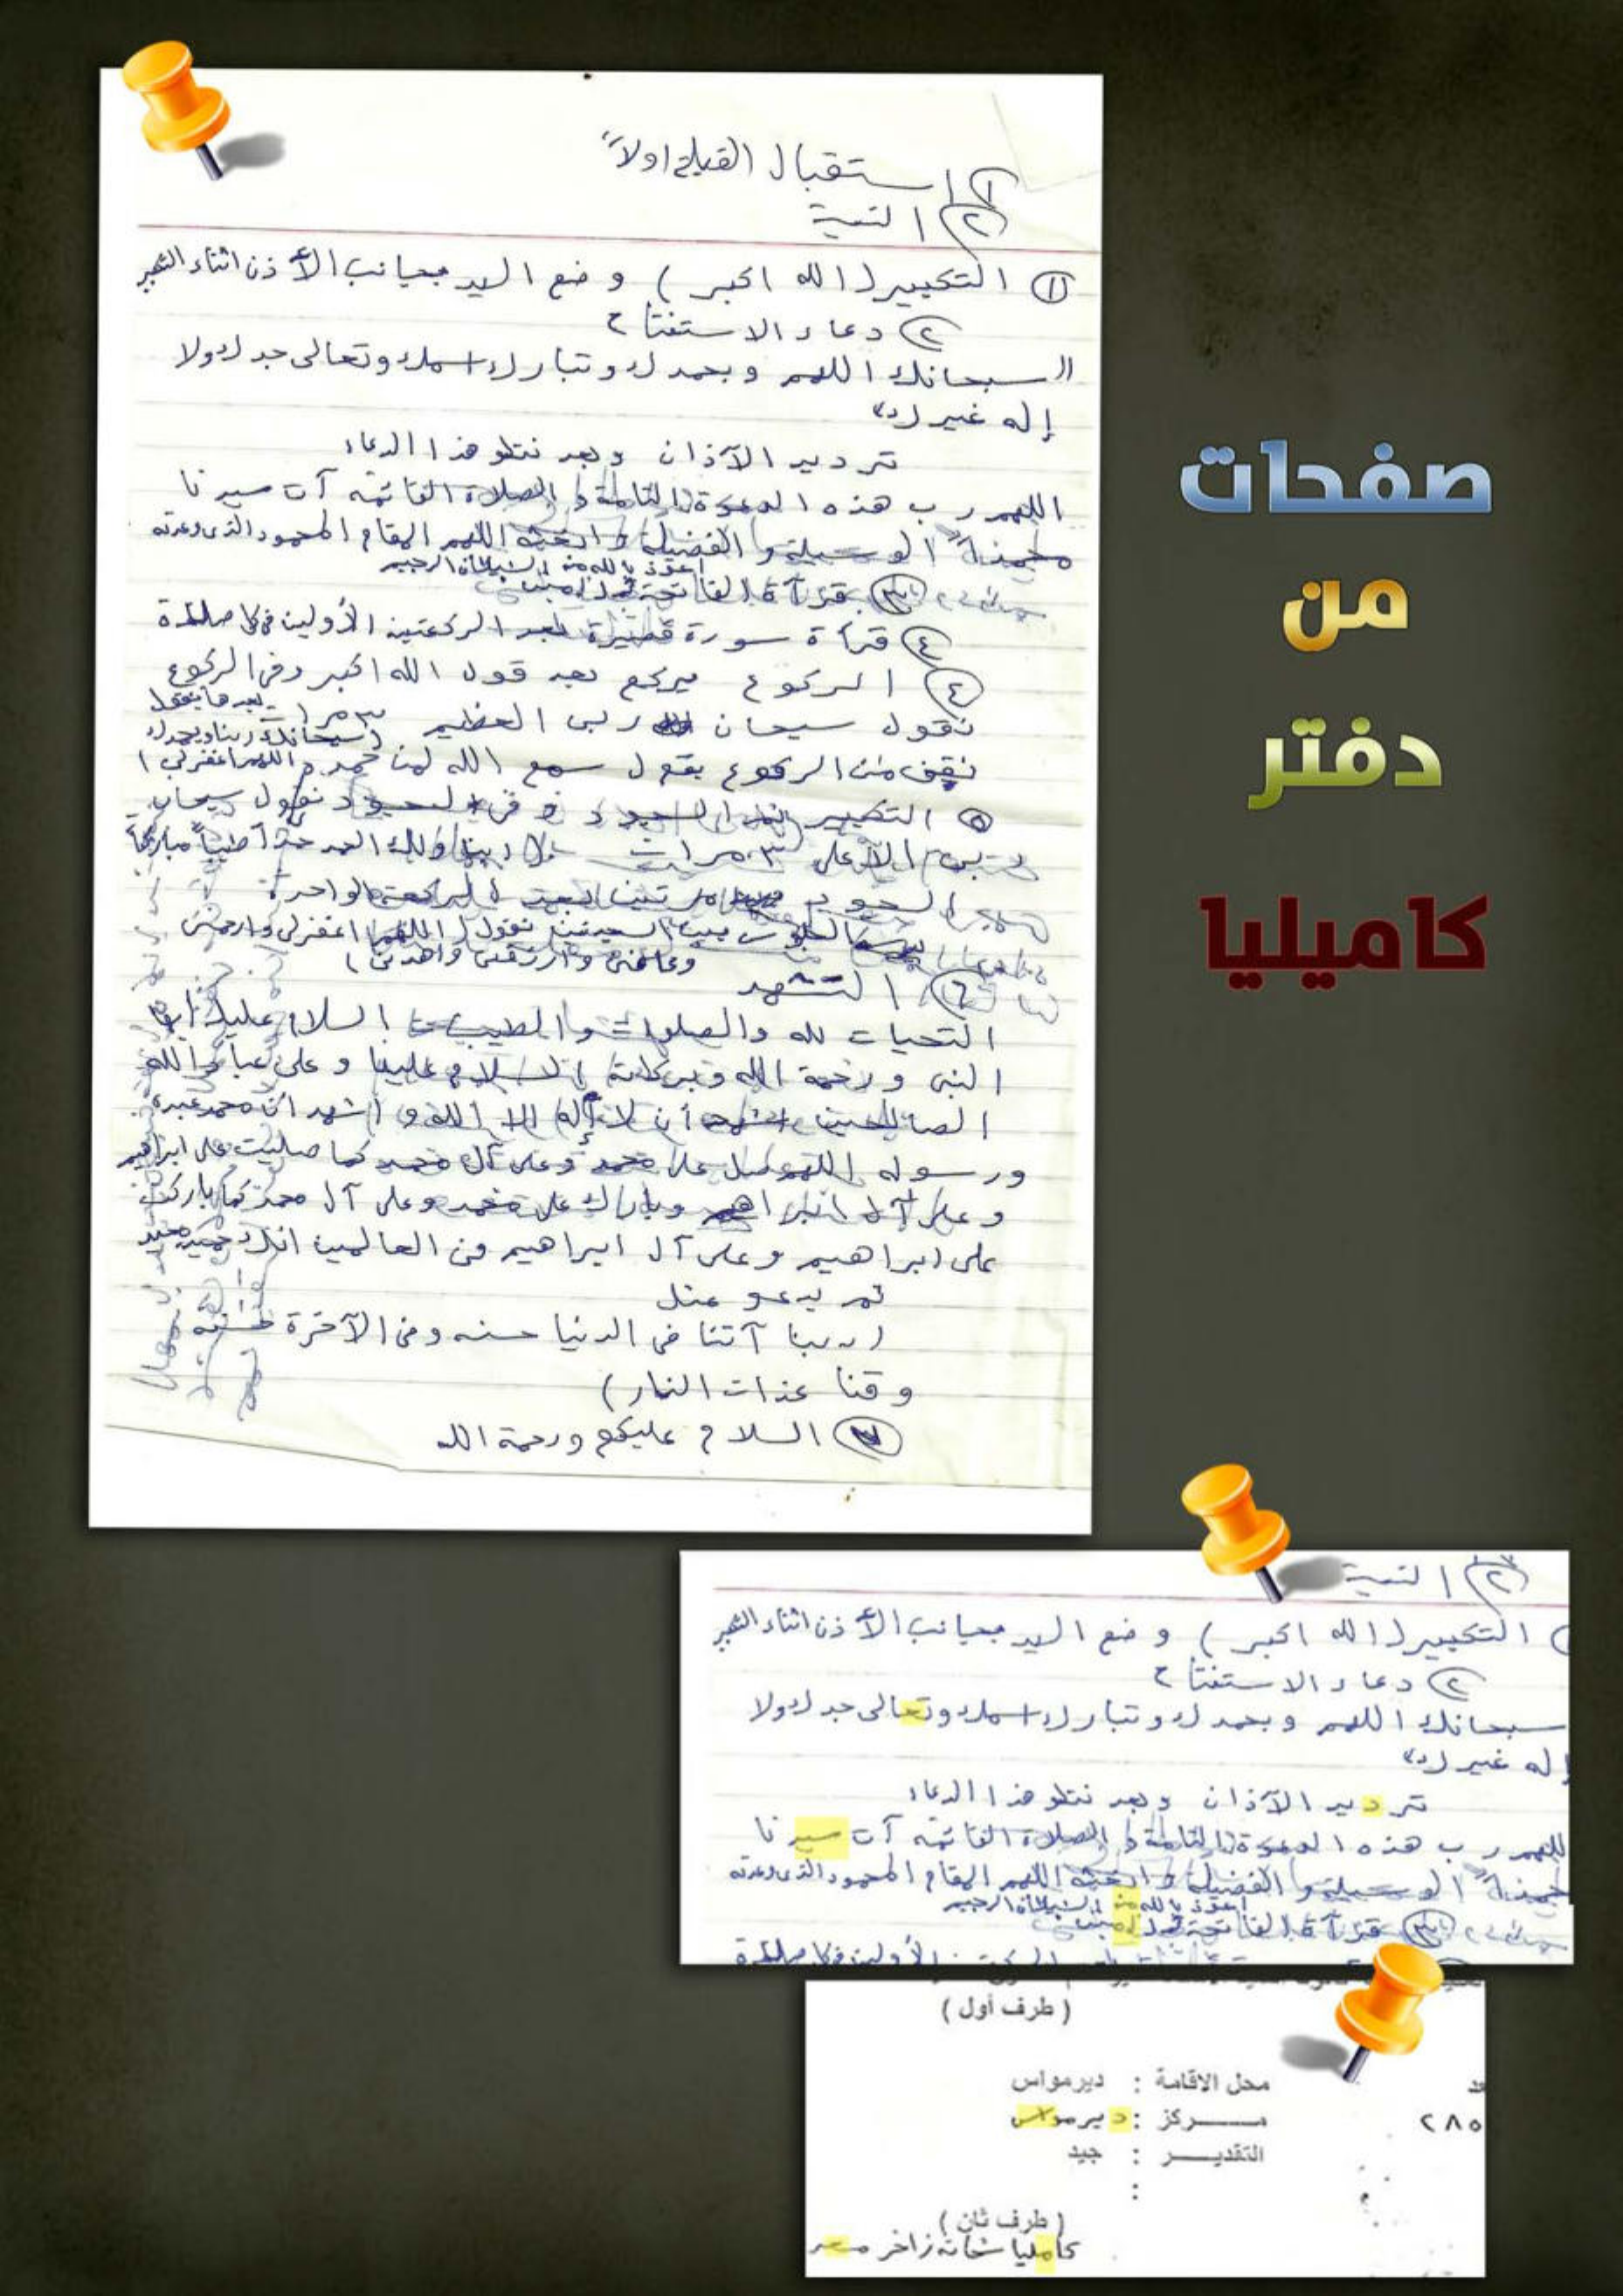 ١ استقبال القبلة اولاً
٢ النية
١ التكبير (الله اكبر) وضع اليد بجانب الأذن اثناء التكبير
٢ دعاء الاستفتاح
"سبحانك اللهم وبحمدك وتبارك اسمك وتعالى جدك ولا
إله غيرك"
ترديد الآذان وبعد نتلو هذا الدعاء
اللهم رب هذه الدعوة التامة والصلاة القائمه آت سيدنا
محمداً الوسيلة والفضيلة وابعثه اللهم المقام المحمود الذى وعدته
اعوذ بالله من الشيطان الرجيم
٣ قرآة الفاتحة
٤ قرأة سورة قصيرة بعد الركعتين الأولين فى كل صلاة
٤ الركوع يركع بعد قول الله اكبر وفى الركوع
نقول سبحان ربى العظيم ٣ مرا بعدها نقول
(سبحانك ربنا وبحمدك
نقف من الركوع بقول سمع الله لمن حمد اللهم اغفرلى)
٥ التكبير ثم السجود و فى السجود نقول سبحان
ربى الأعلى ٣ مرات ربنا ولك الحمد حمداً طيباً مباركاً
السجود مرتين الركعة الواحدة
بين السجدتين نقول (اللهم اغفرلى وارحمنى
وعافنى وارزقنى واهدنى)
٦ التشهد
التحيات لله والصلوات والطيبات السلام عليك أيها
النبى ورحمة الله وبركاته السلام علينا وعلى عباد الله
الصالحين اشهد أن لا إله إلا الله و اشهد ان محمد عبده
ورسوله اللهم صل على محمد وعلى آل محمد كما صليت على ابراهيم
وعلى آل ابراهيم وبارك على محمد وعلى آل محمد كما باركت
على ابراهيم وعلى آل ابراهيم فى العالمين انك حميد مجيد
ثم يدعو مثل
(ربنا آتنا فى الدنيا حسنه وفى الآخرة حسنه
وقنا عذاب النار)
٧ السلام عليكم ورحمة الله
صفحات
من
دفتر
كاميليا
٢ النية
التكبير (الله اكبر) وضع اليد بجانب الأذن اثناء التكبير
٢ دعاء الاستفتاح
سبحانك اللهم وبحمدك وتبارك اسمك وتعالى جدك ولا
إله غيرك"
ترديد الآذان وبعد نتلو هذا الدعاء
اللهم رب هذه الدعوة التامة والصلاة القائمه آت سيدنا
محمداً الوسيلة والفضيلة وابعثه اللهم المقام المحمود الذى وعدته
اعوذ بالله من الشيطان الرجيم
٣ قرآة الفاتحة
(طرف أول)
محل الاقامة : ديرمواس
مركز : ديرمواس
٢٨٥
التقدير : جيد
:
(طرف ثان)
كاملیا شحاته زاخر